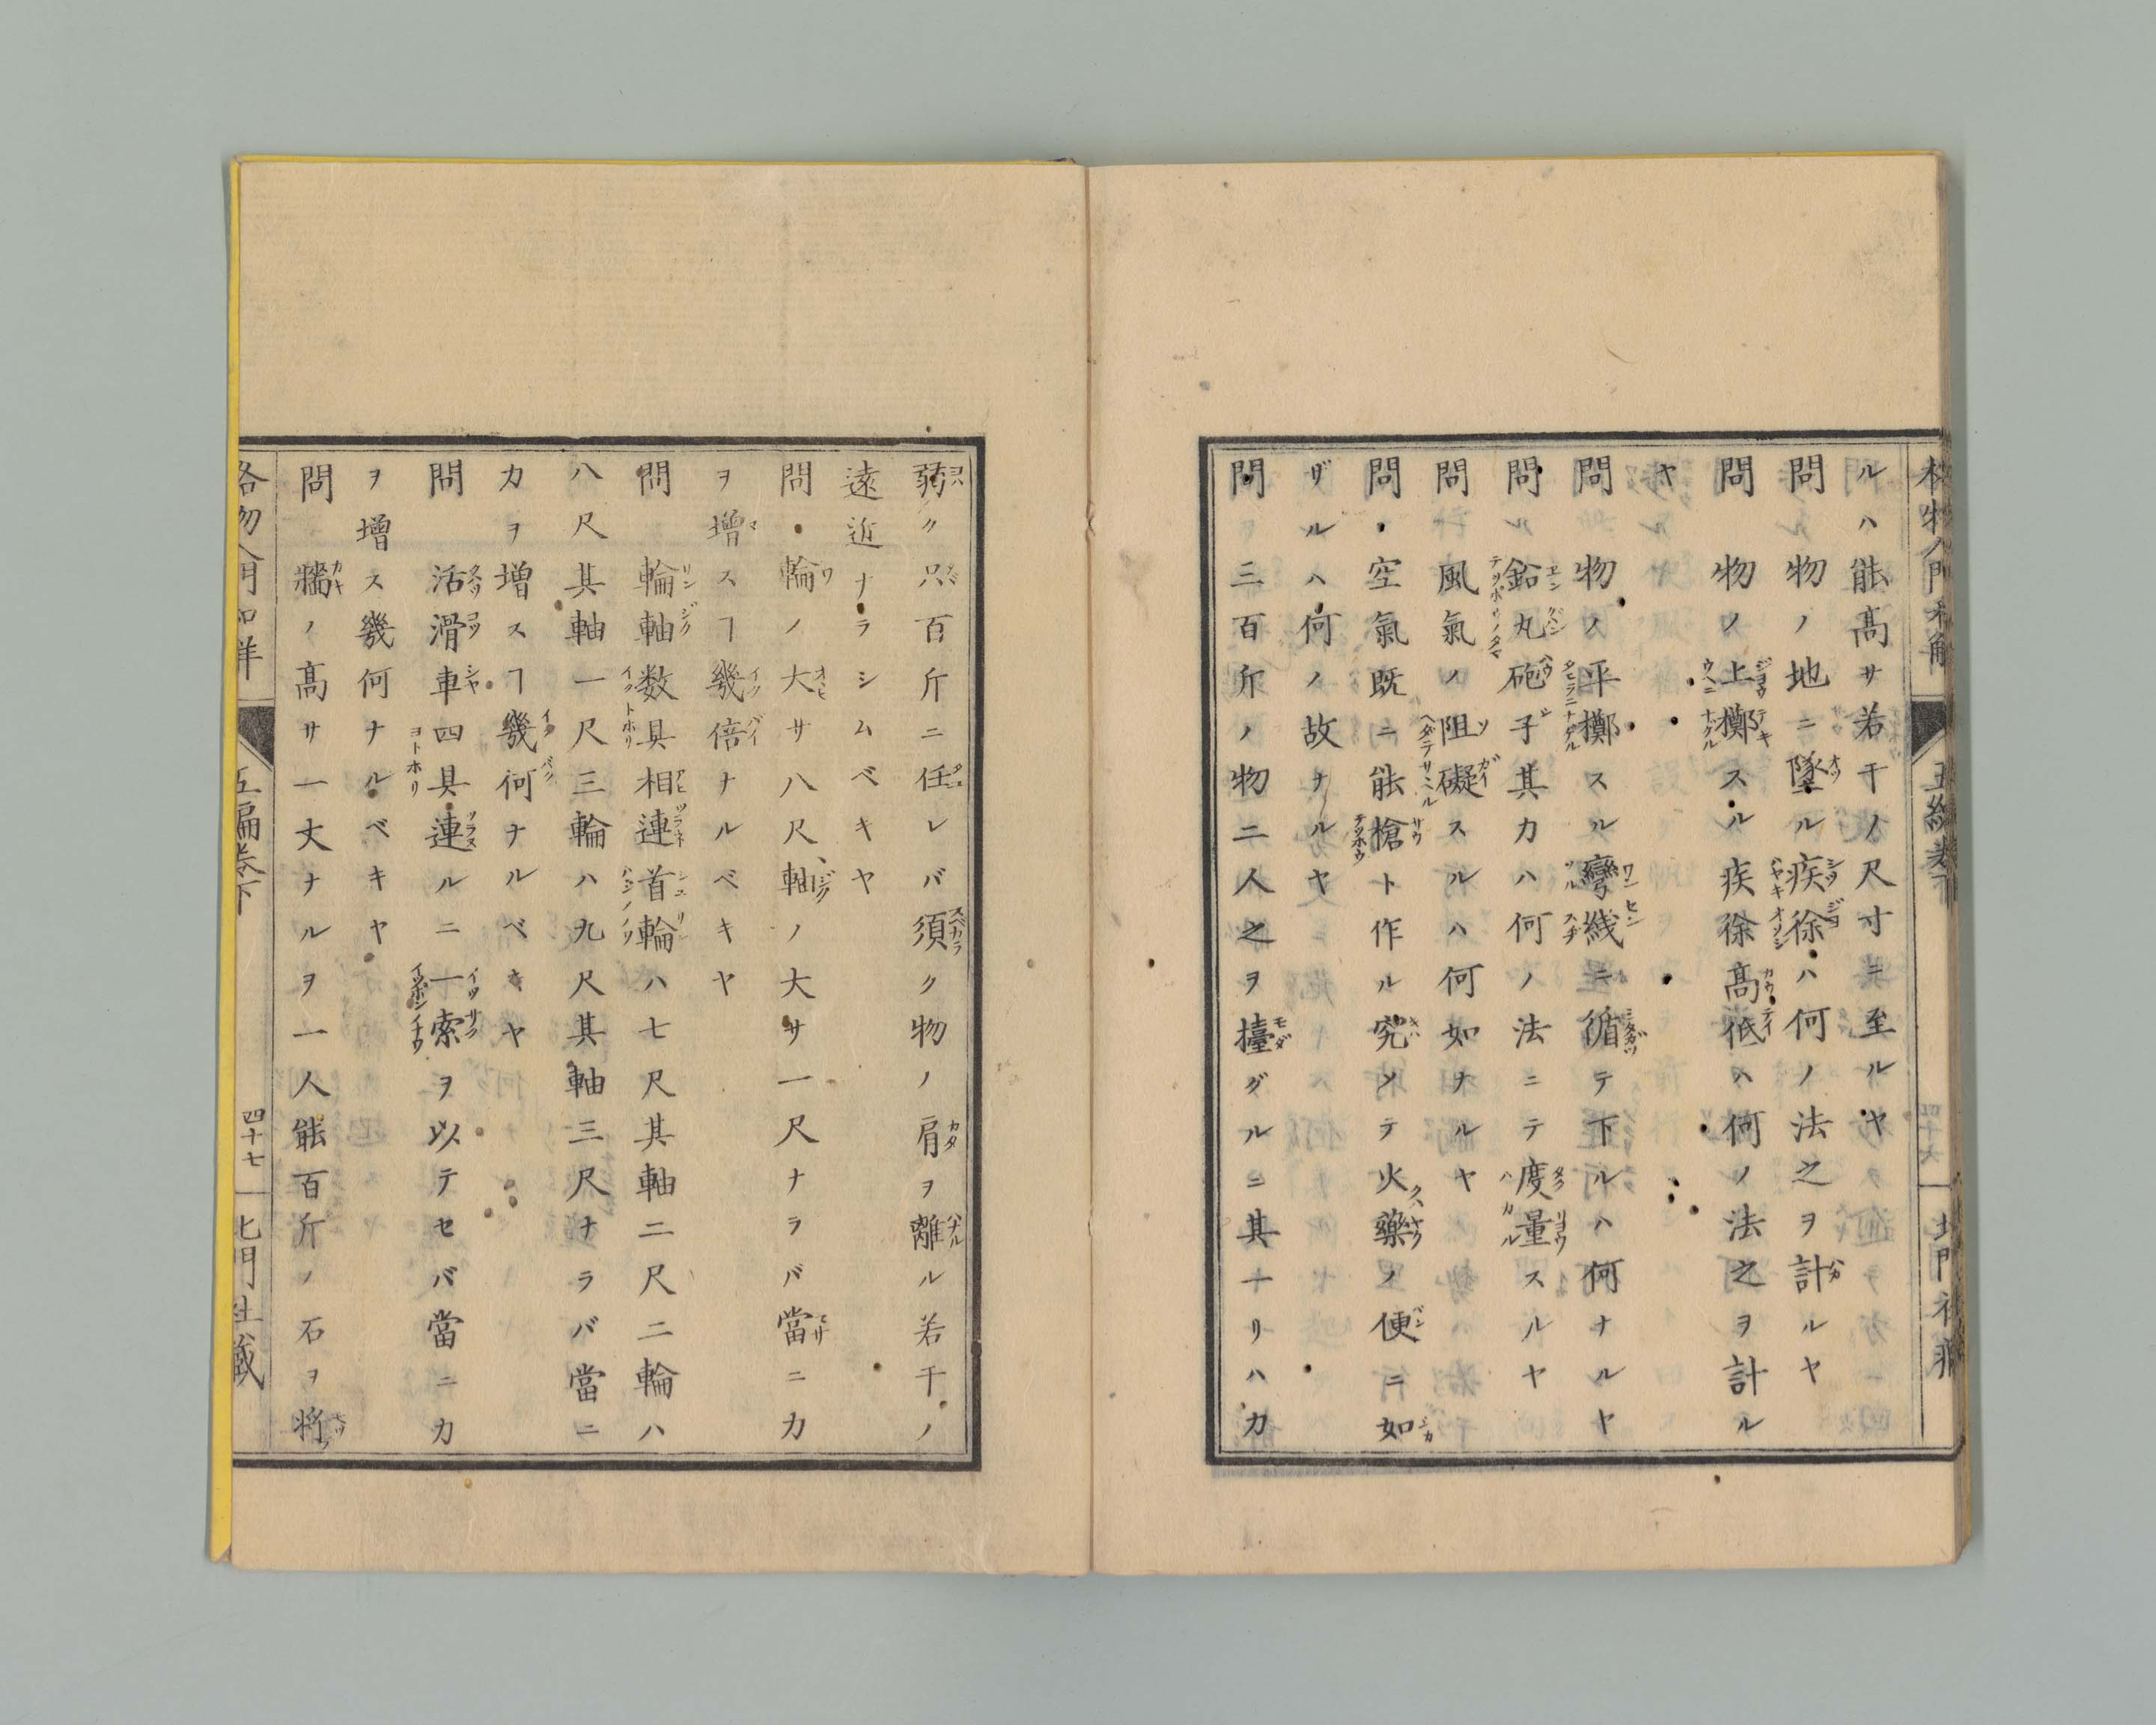 ルハ能髙サ若干ノ尺寸ニ至ルヤ
問　物ノ地ニ墜ル疾徐ハ何ノ法之ヲ計ルヤ
問　物ノ上擲スル疾徐髙低ハ何ノ法之ヲ計ル
ヤ
問　物ノ平擲スル彎綫ニ循テ下ルハ何ナルヤ
問　鉛丸砲子其力ハ何ノ法ニテ度量スルヤ
問　風氣ノ阻礙スルハ何如ナルヤ
問　空氣既ニ能槍ト作ル究メテ火藥ノ便ニ如
ザルハ何ノ故ナルヤ
問　三百斤ノ物二人之ヲ擡グルニ其一ナリハカ
弱ク只百斤ニ任レバ須ク物ノ肩ヲ離ル若干ノ
遠近ナラシムベキヤ
問　輪ノ大サ八尺軸ノ大サ一尺ナラバ當ニ力
ヲ増スヿ幾倍ナルベキヤ
問　輪軸数具相連首輪ハ七尺其軸二尺二輪ハ
八尺其軸一尺三輪ハ九尺其軸三尺ナラバ當ニ
力ヲ増スヿ幾何ナルベキヤ
問　活滑車四具連ルニ一索ヲ以テセバ當ニ力
ヲ増ス幾何ナルベキヤ
問　牆ノ髙サ一丈ナルヲ一人能百斤ノ石ヲ將
五編巻下
四十七
北門社藏